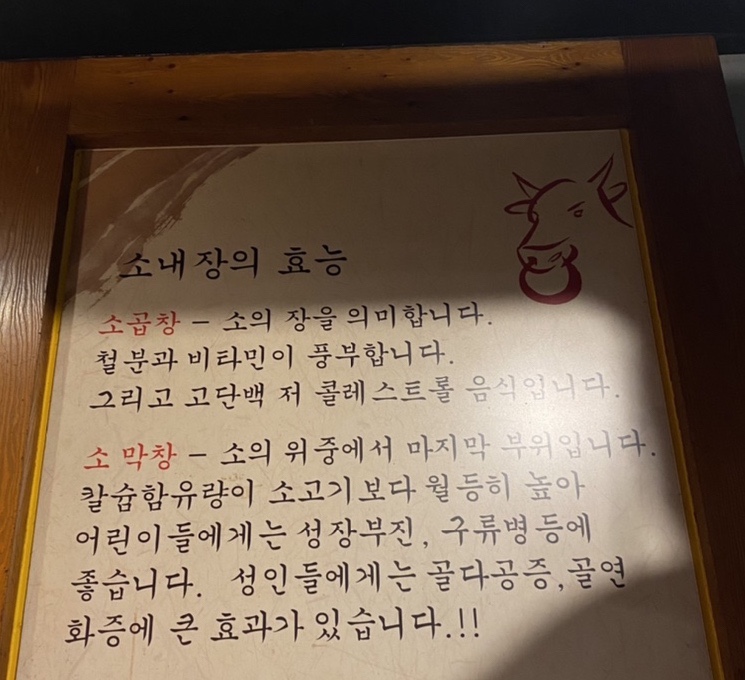 소내장의 효능
소곱창 - 소의 장을 의미합니다.
철분과 비타민이 풍부합니다.
그리고 고단백 저 콜레스트롤 음식입니다.
소 막창 - 소의 위중에서 마지막 부위입니다.
칼슘함유량이 소고기보다 월등히 높아
어린이들에게는 성장부진, 구류병등에
좋습니다. 성인들에게는 골다공증,골연
화증에 큰 효과가 있습니다.!!